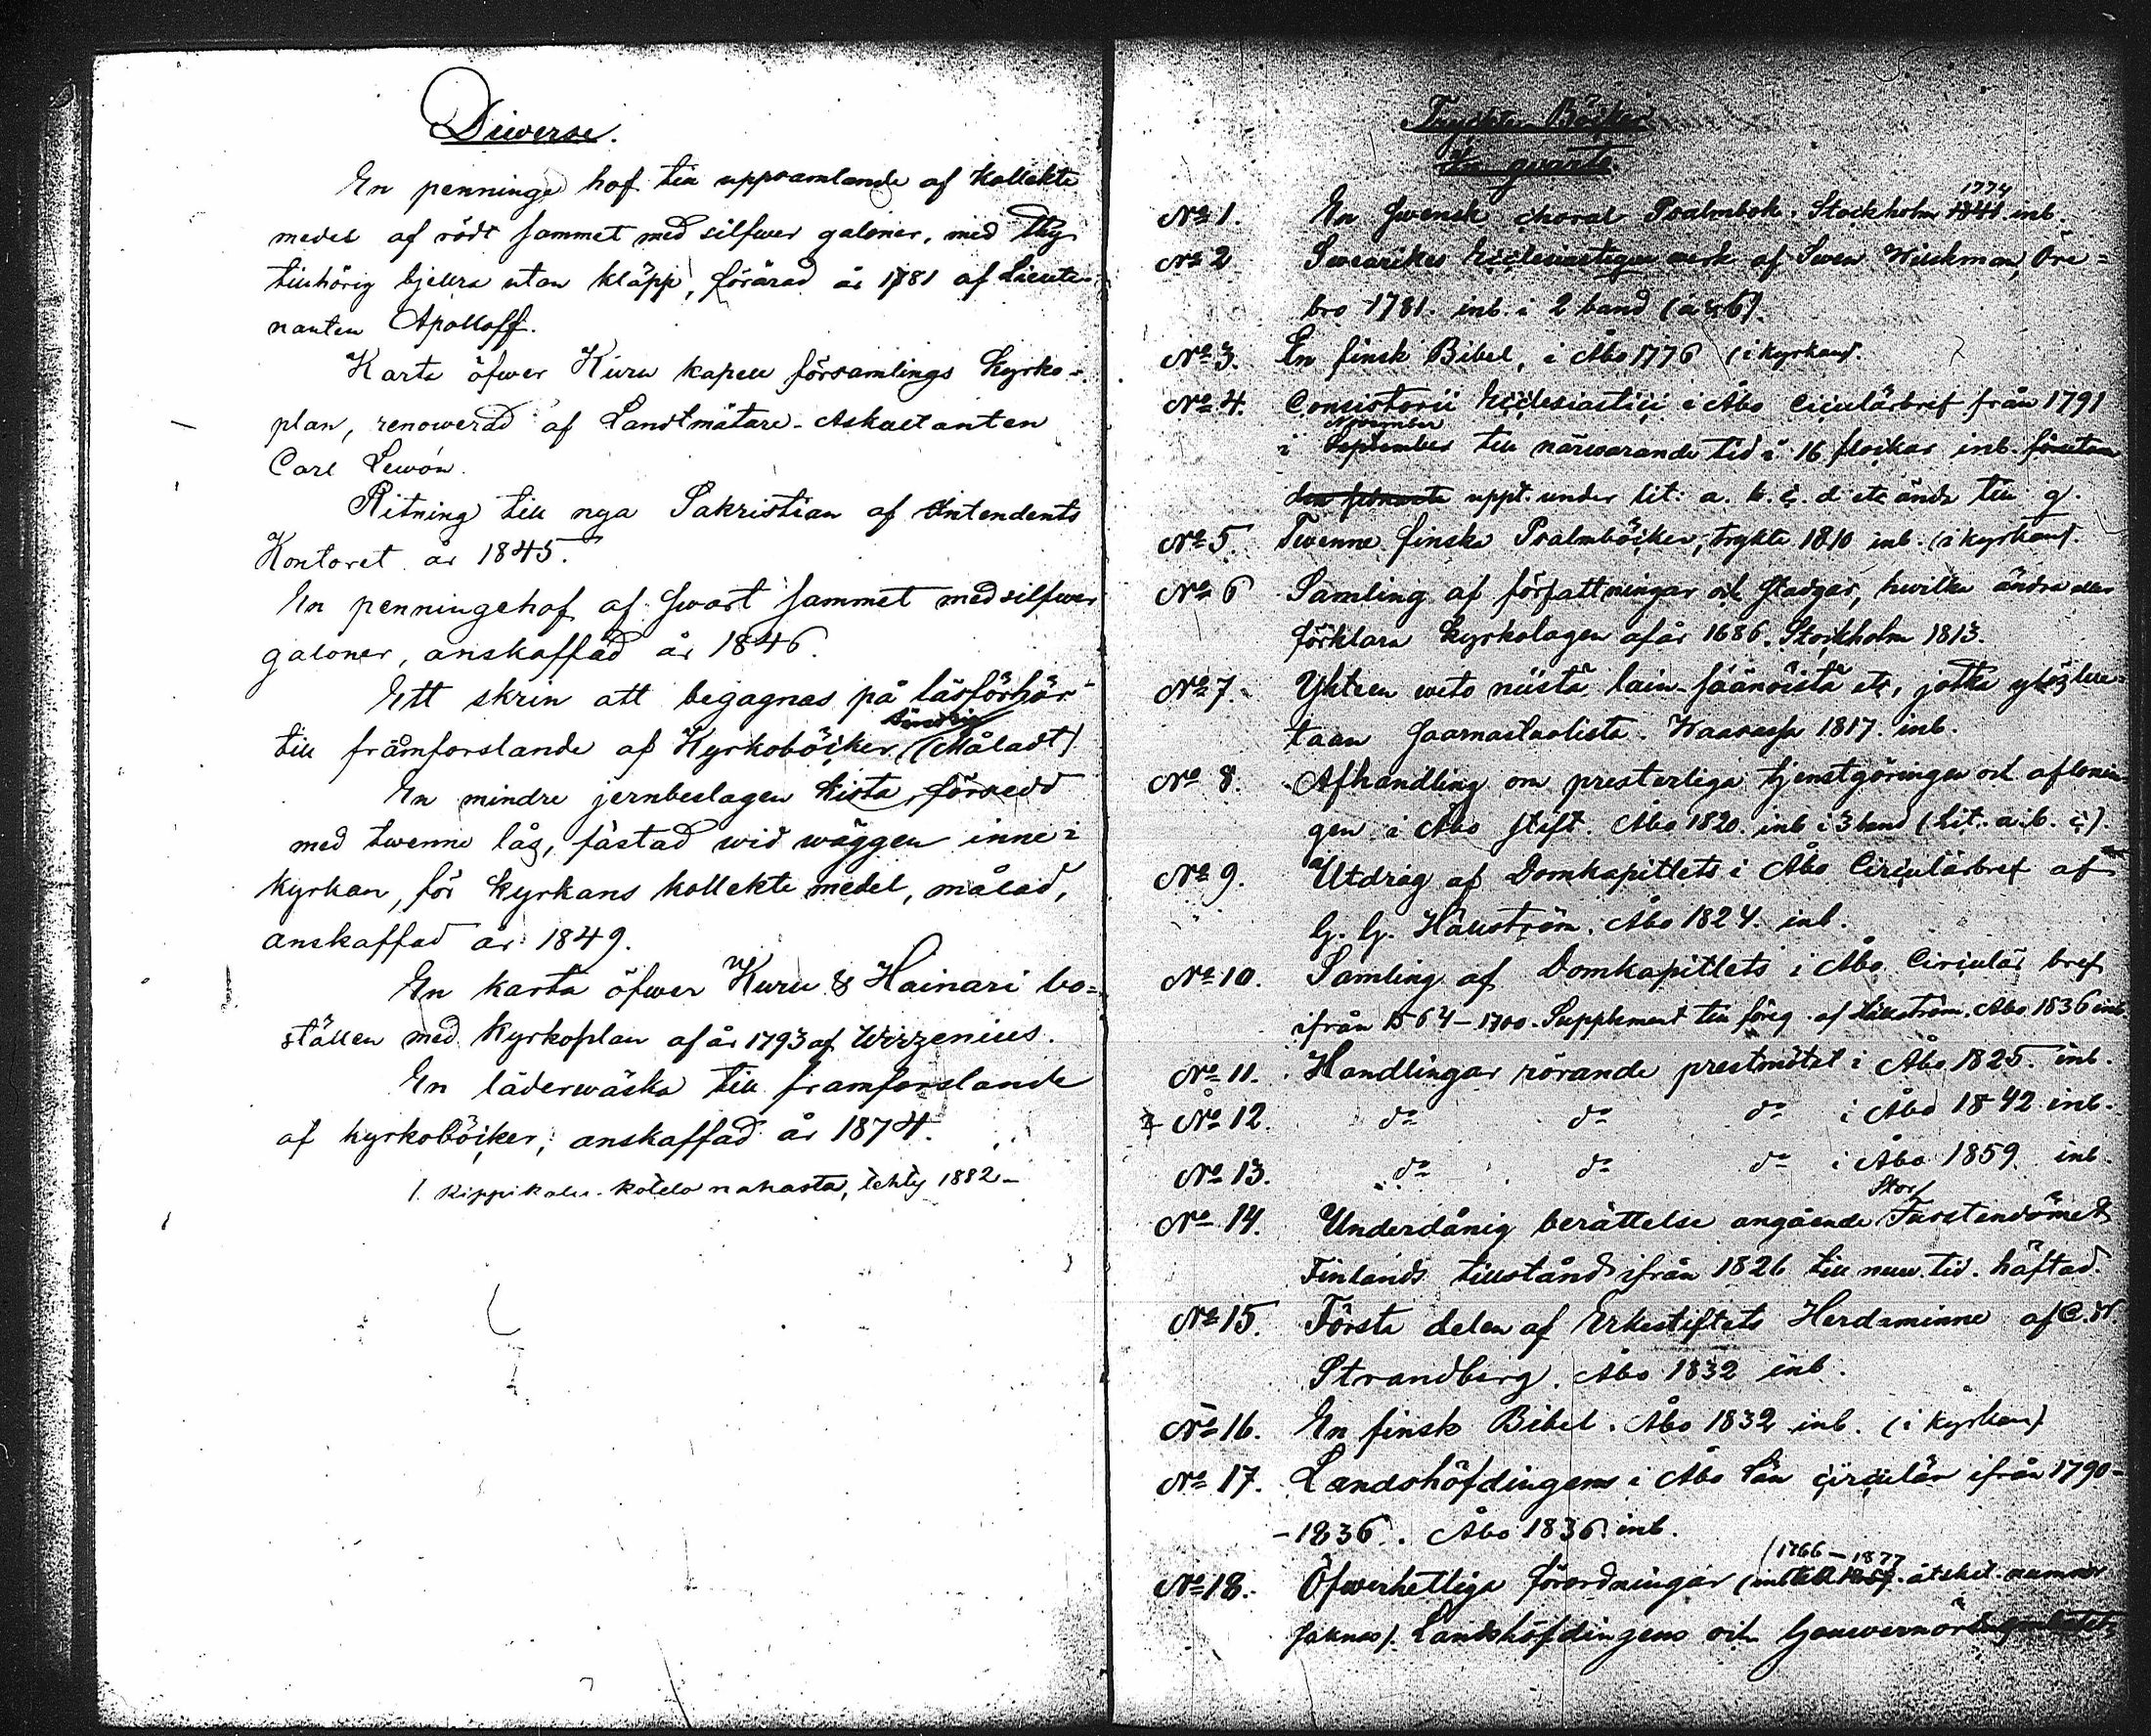 Diverse.
En penninge hof till uppsamlande af Kollekte
medel af rödt sammet med silfwer galoner, med
tillhörig bjellra utan kläpp, förärad år 1781 af Lieute-
nanten Apolloff.
Karta öfwer Kuru kapell församlings Kyrko-
plan, renowerad af Landtmätare-Auskultanten
Carl Lewón.
Ritning till nya Sakristian af Intendents
Kontoret år 1845.
En penningehof af swart sammet med silfwer
galoner, anskaffad år 1846.
Ett skrin att begagnas på läsförhör
till framforslande af Kyrkoböcker, (Måladt)
En mindre jernbeslagen Kista, försedd
med twenne lås, fästad wid wäggen inne i
kyrkan, för kyrkans kollekte medel, målad,
anskaffad år 1849.
En karta öfwer Kuru & Hainari bo=
ställen med Kyrkoplan af år 1793 af Wirzenius.
En läderwäska till framforslande
af kyrkoböcker, anskaffad år 1874.
1. Rippikalu-kotelo nahasta, tehty 1882 -
Tryckta Böcker
In quarto.
1774
No 1. En Swensk choral Psalmbok. Stockholm 1841 inb.
No 2 Swearikes Ecclesiastique werk af Swen Wilskman, Öre=
bro 1781. inb. i 2 band (a & b).
No 3. En finsk Bibel, i Åbo 1776 (i kyrkan).
No 4. Consistorii Ecclesiastici i Åbo Circulärbref från 1791
November
i September till närwarande tid i 16 flockar inb. förutom
uppt. under lit: a. b. c. d etc ända till q.
No 5. Twenne finska Psalmböcker, trykte 1810 inb. (i kyrkan).
No 6 Samling af författningar och Stadgar, hwilka ändra eller
förklara kyrkolagen af år 1686. Stockholm 1813.
No 7. Yhteen weto niistä lain-säännöistä etc, jotka ylöslue=
taan Saarnastuolista. Waasassa 1817. inb.
No 8. Afhandling om presterliga tjenstgöringen och aflönin=
gen i Åbo Stift. Åbo 1820. inb i 3 band (Lit. a. b. c).
No 9. Utdrag af Domkapitlets i Åbo Circulärbref af
G. G. Hällström. Åbo 1824. inb.
No 10. Samling af Domkapitlets i Åbo Circulär bref
ifrån 1564-1700. Supplement till föreg. af Hällström. Åbo 1836 inb.
No 11. Handlingar rörande prestmötet i Åbo 1825. inb.
No 12. do do do i Åbo 1842 inb.
No 13. do do do i Åbo 1859 inb.
Stor
No 14. Underdånig berättelse angående Furstendömet
Finlands tillstånd ifrån 1826 till nuw. tid. häftad.
No 15. Första delen af Erkestiftets Herdaminne af C. H.
Strandberg. Åbo 1832 inb.
No 16. En finsk Bibel. Åbo 1832 inb. (i kyrkan)
No 17. Landshöfdingens i Åbo län circulär ifrån 1790-
-1836. Åbo 1836 inb.
(1766-1877
No 18. Öfwerhetliga förordningar (inb. åtskil. nummor
saknas). Landshöfdingens och Gouvernörs